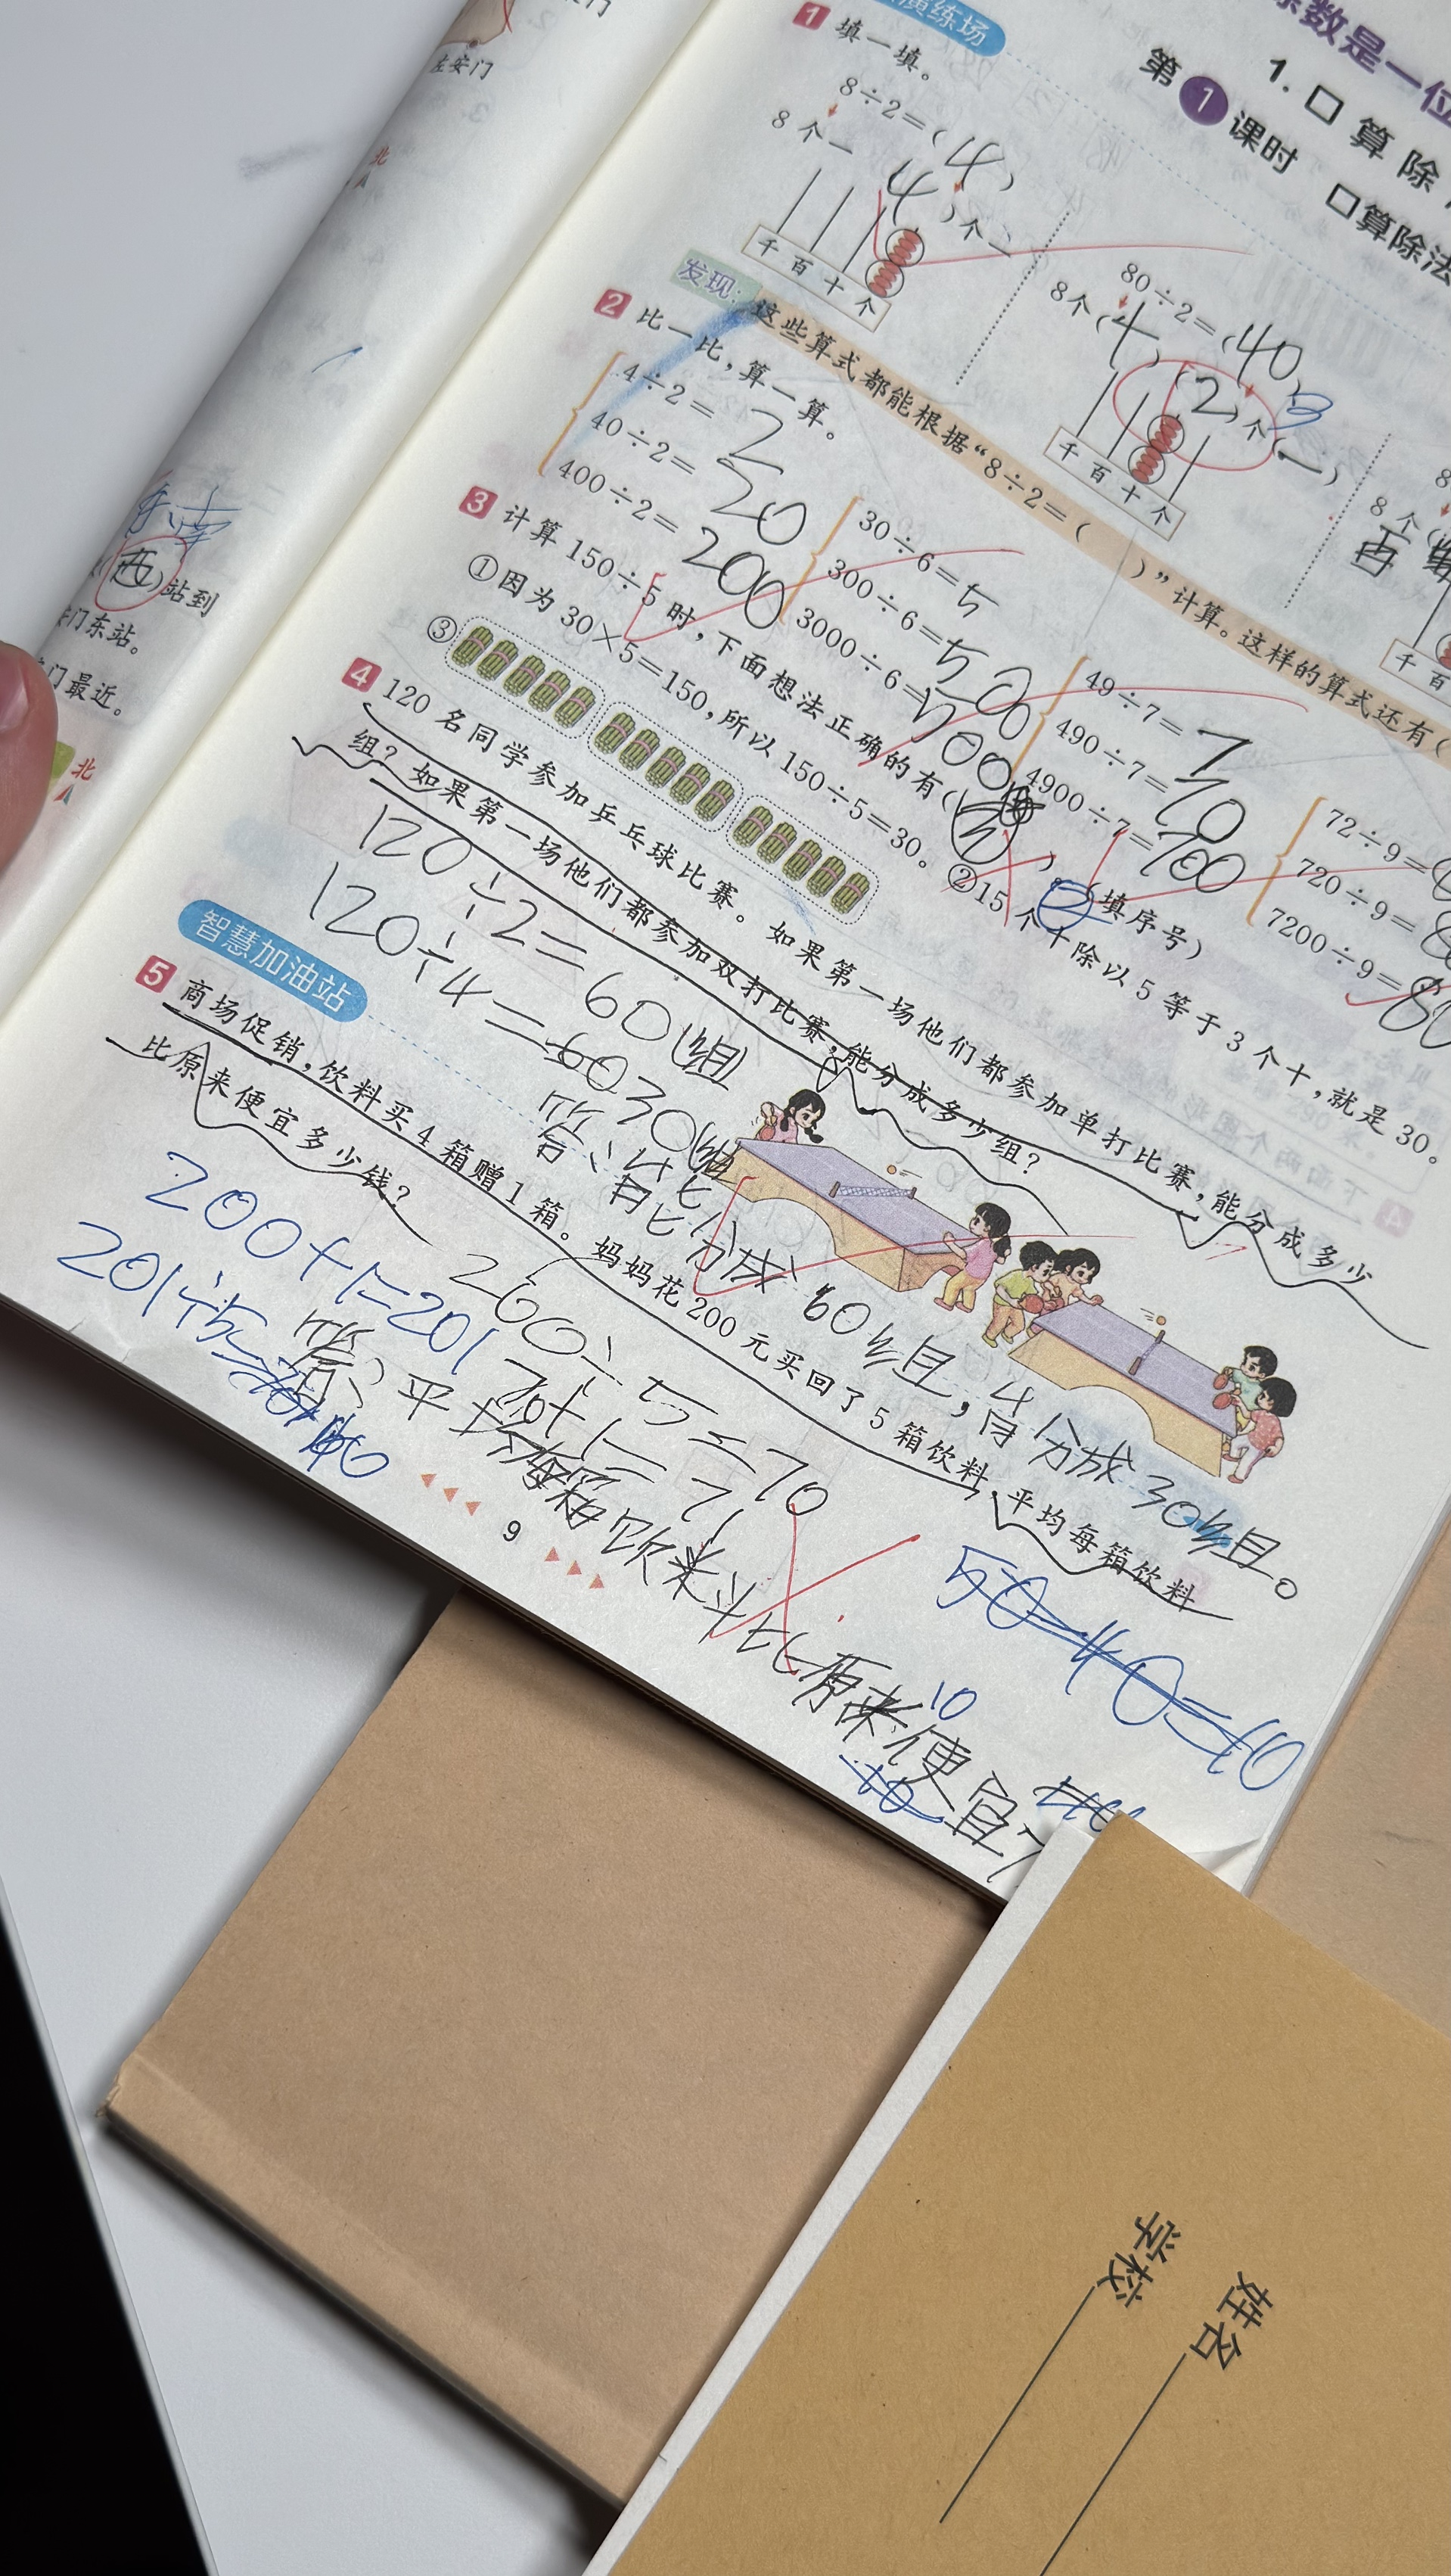 除数是一位
1. 口算除
第1课时 口算除法
演练场
1 填一填。
8÷2=(4)
8个一
(4)个一
千百十个
80÷2=(40)
8个(十)
(2)个(一)
千百十个
8个(百
千百
发现:这些算式都能根据“8÷2=( )”计算。这样的算式还有(
2 比一比,算一算。
4÷2=2
40÷2=20
400÷2=200
30÷6=5
300÷6=50
3000÷6=500
49÷7=7
490÷7=70
4900÷7=700
72÷9=
720÷9=
7200÷9=80
3 计算150÷5时,下面想法正确的有( )。(填序号)
①因为30×5=150,所以150÷5=30。 ②15个十除以5等于3个十,就是30。
③
4 120名同学参加乒乓球比赛。如果第一场他们都参加单打比赛,能分成多少
组?如果第一场他们都参加双打比赛,能分成多少组?
120÷2=60(组)
120÷4=30(组)
答:能分成60组,能分成30组。
智慧加油站
5 商场促销,饮料买4箱赠1箱。妈妈花200元买回了5箱饮料,平均每箱饮料
比原来便宜多少钱?
200+1=201
201÷5=
200÷5=70
70+1=71
答:平均每箱饮料比原来便宜
50-40=10
10
9
左安门
北
西)站到
安门东站。
门最近。
北
学校
姓名